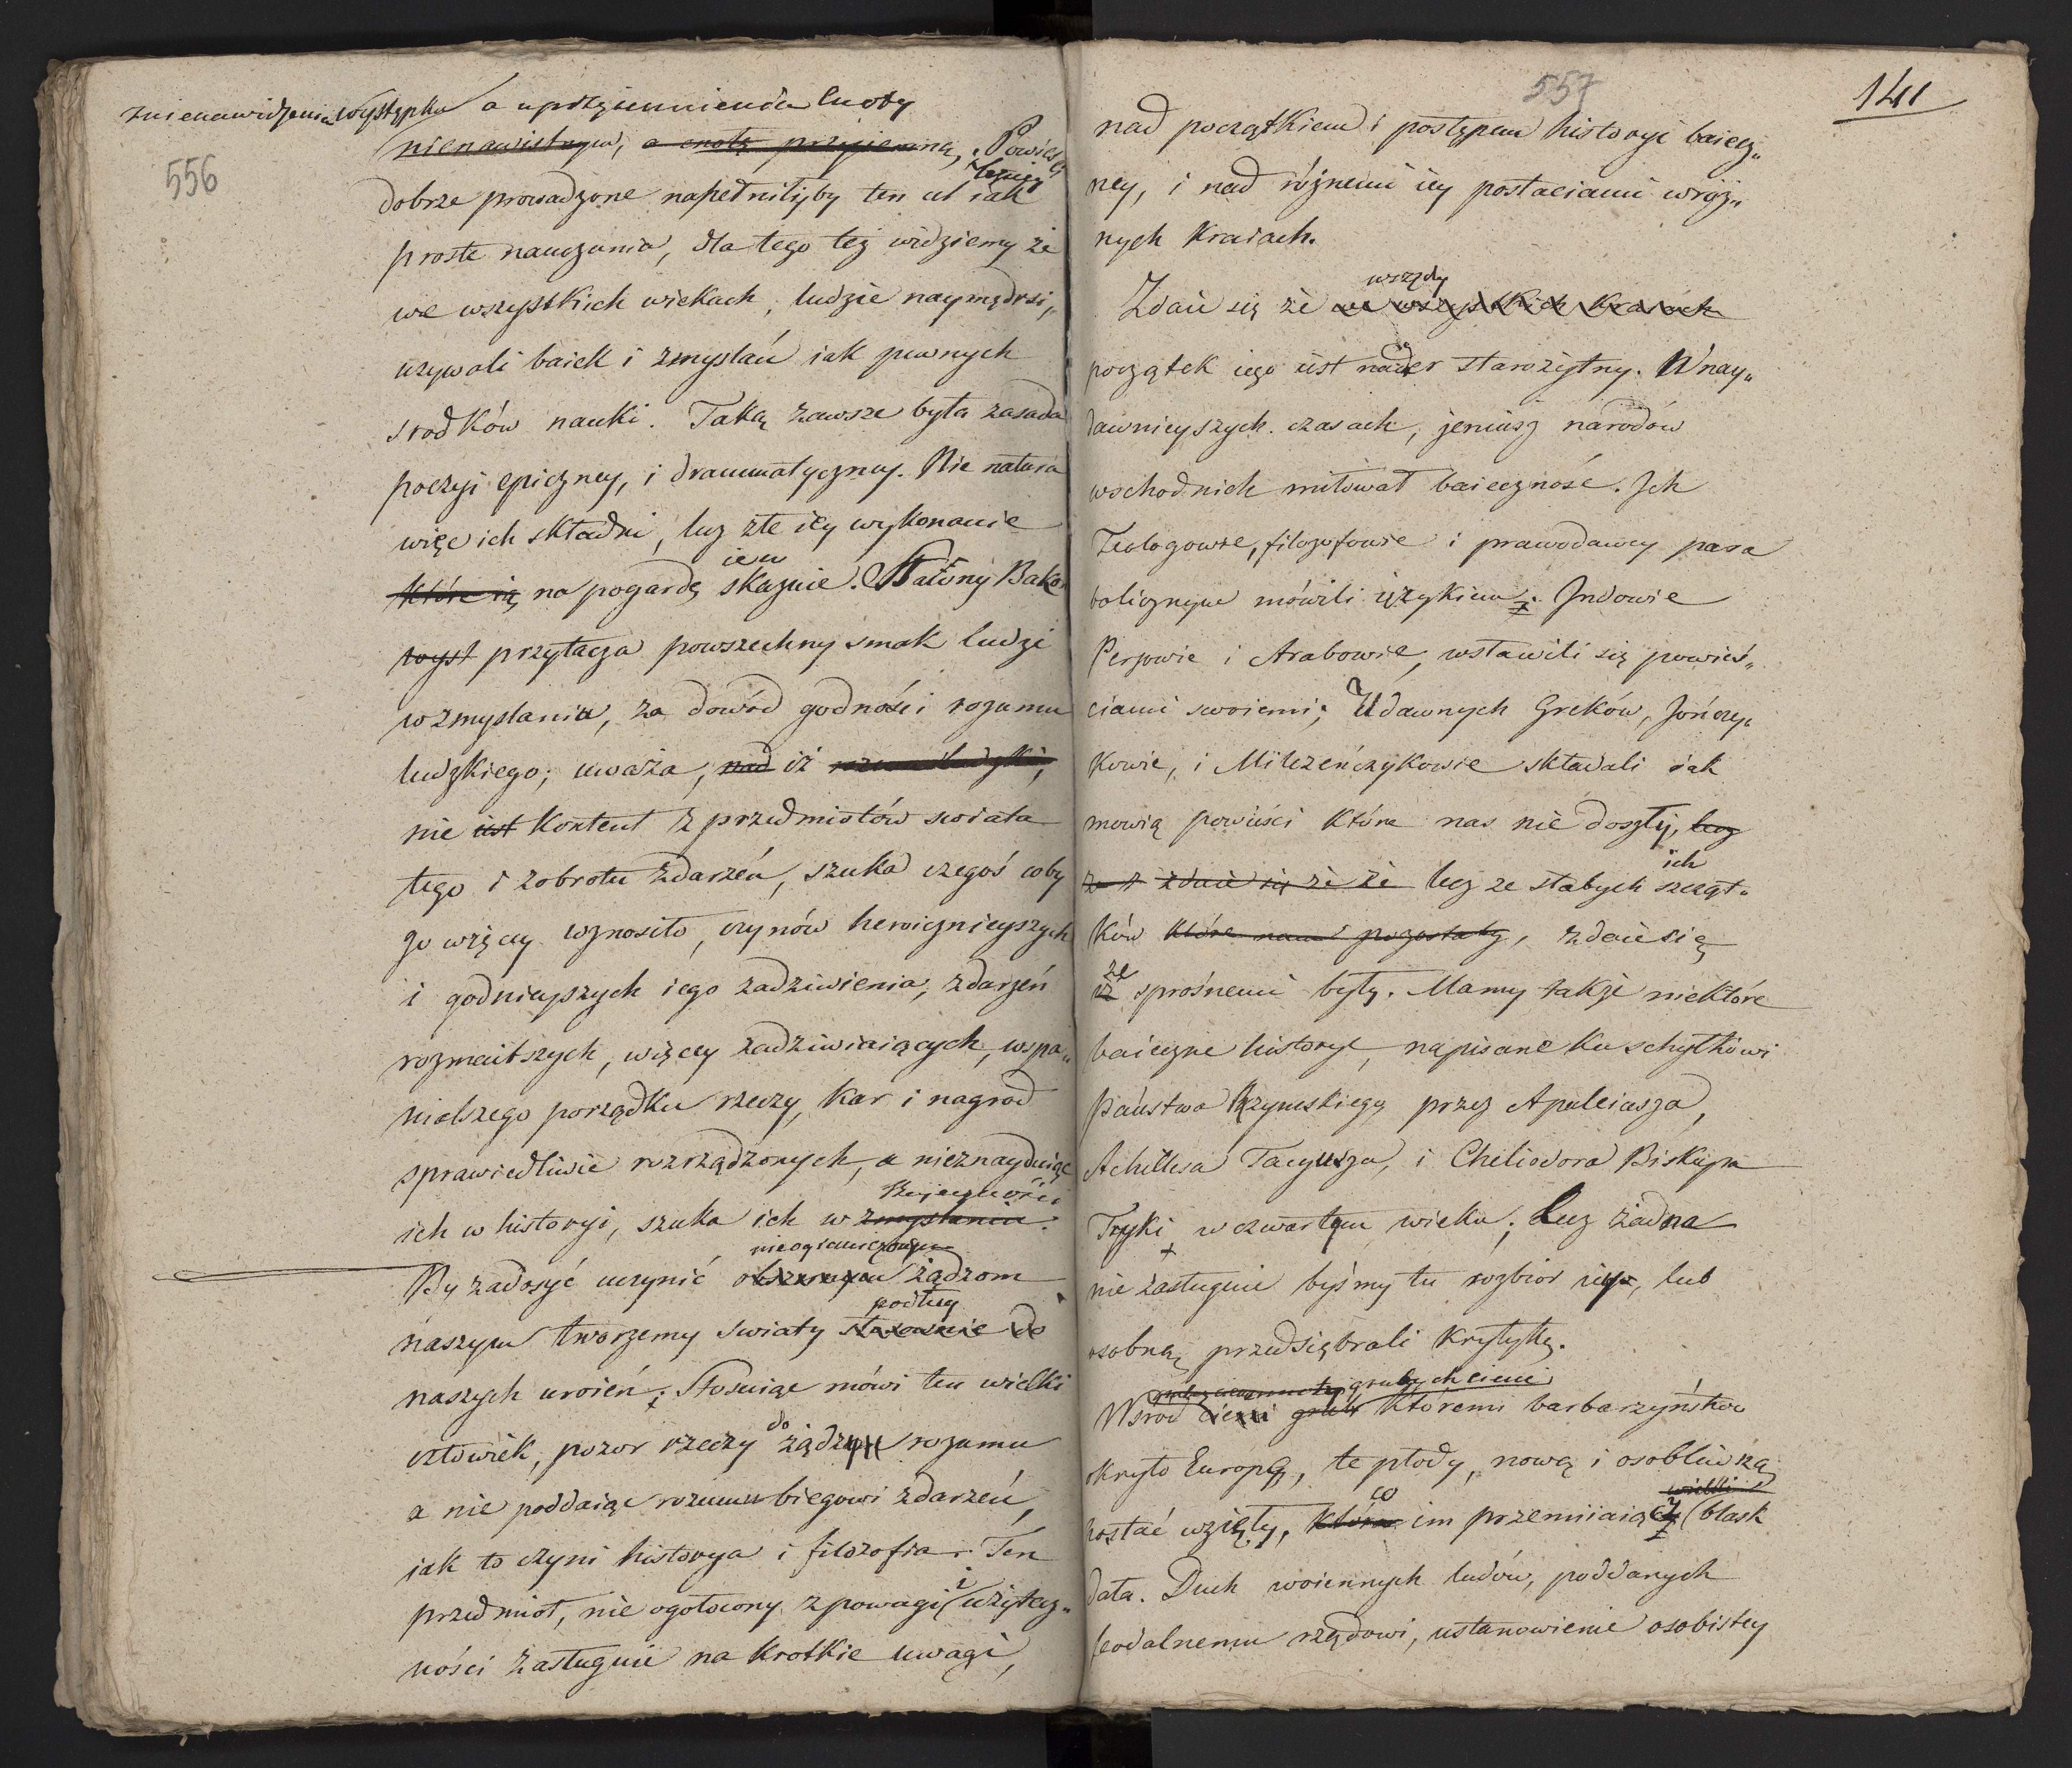 znienawidzenia występku a uprzyiemnienia cnoty
556
nienawistnym, a cnotę przyiemną, Powieści
lepiéy
dobrze prowadzone napełniłyby ten cel iak
proste nauczania, dla tego też widziemy że
we wszystkich wiekach, ludzie naymędrsi,,
używali baiek i zmyslań iak pewnych
srodków nauki. Taką zawsze była zasada
poezyi epiczney, i drammatyczney. Nie natura
więc ich składni, lecz złe iey wykonanie
iew
które ią na pogardę skazuie.
przytacza powszechny smak ludzi
w zmyslaniu, za dowód godności rozumu
ludzkiego; uważa, nad iż
nie iest kontent z przedmiotów swiata
tego i zobrotu zdarzeń, szuka czegoś coby
go więcey wznosiło, czynów heroicznieyszych
i godnieyszych iego zadziwienia, zdarzeń
rozmaitszych, więcey zadziwiaiących, wspa,,
nialszego porządku rzeczy, kar i nagrod
sprawiedliwie rozrządzonych, a nieznayduiąc
ich w historyi, szuka ich w zmyslaniu.
nieograniczonym
By zadosyć uczynić obszernym żądzom
podług
naszym tworzemy swiaty stosownie do
naszych uroień; Stosuiąc mówi ten wielki
człowiek, pozor rzeczy do żądzy rozumu
a nie poddaiąc rozumu biegowi zdarzeń,
iak to czyni historya i filozofia. Ten
przedmiot, nie ogołocony z powagi i użytecz,,
ności zasługuie na krotkie uwagi,
557
141
nad początkiem i postępem historyi baiecz,,
ney, i nad różnemi iey postaciami w róż,,
nych kraiach.
wszędy
Zdaie się że we wszystkich kraiach
początek iego iest nader starożytny. W nay,,
dawnieyszych czasach, jeniusz narodów
wschodnich miłował baieczność. Ich
Teologowie, filozofowie i prawodawcy para
bolicznym mówili ięzykiem. Indowie
Persowie i Arabowie, wsławili się powieś,,
ciami swoiemi; U dawnych Greków, Jończy,,
kowie, i Milezeńczykowie składali iak
mowią powieści które nas nie doszły, lecz
zdaie się że że lecz ze słabych ich szcząt,,
ków które nam pozostały, zdaie się
że
iż sprośnemi były. Mamy także niektóre
baieczne historye, napisane ku schyłkowi
Państwa Rzymskiego przez Apuleiasza,
Achillesa Tacyusza, i Cheliodora Biskupa
Tryki w czwartym wieku; Lecz żadna
nie zasługuie byśmy tu rozbior iey, lub
osobną przedsiębrali krytykę.
grubych cieni
Wsrod cieni któremi barbarzyństwo
okryło Europę, te płody, nową i osobliwszą
wielki
postać wzięły, która co im przemiiaiący blask
dała. Duch woiennych ludów, poddanych
feodalnemu rządowi, ustanowienie osobistey